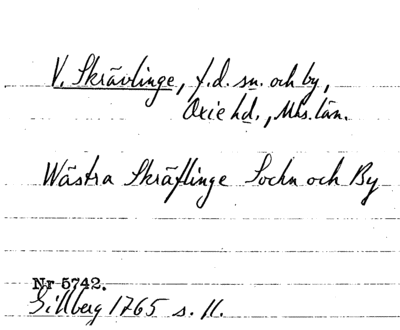 V. Skrävlinge, f.d. sn. och by,
Oxie hd., Mhs. län.
Wästra Skräflinge Sochn och By
Nr 5742.
Gillberg 1765 s. 11.